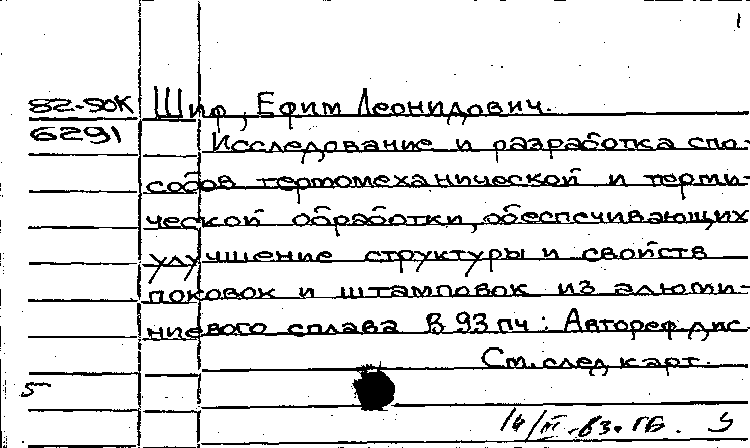 1
82-50К Шиф, Ефим Леонидович.
6291 Исследование и разработка спо-
собов термомеханической и терми-
ческой обработки, обеспечивающих
улучшение структуры и свойств
поковок и штамповок из алюми-
ниевого сплава В 93 пч : Автореф дис
См. след карт.
5